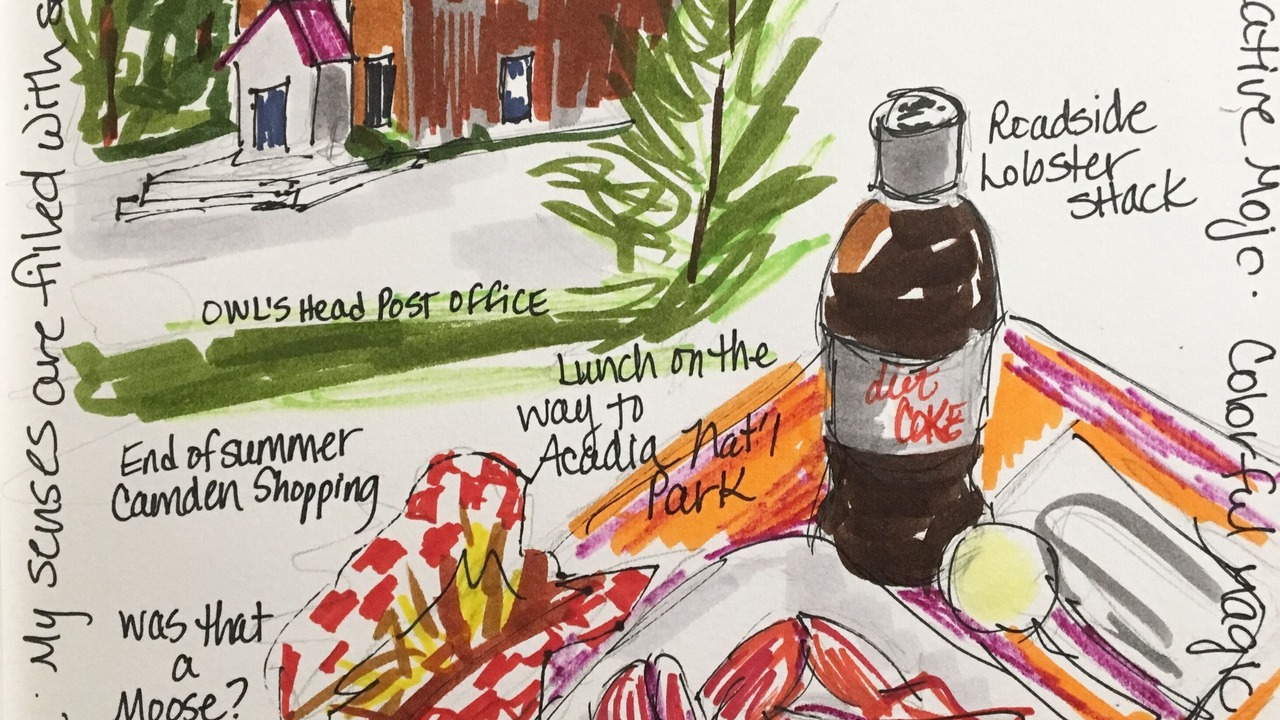 My senses are filled with
OWL'S Head Post Office
End of summer
Camden Shopping
was that
a
Moose?
Lunch on the
way to
Acadia Nat'l
Park
Roadside
Lobster
SHACK
diet
COKE
Mojo. Colorful magic